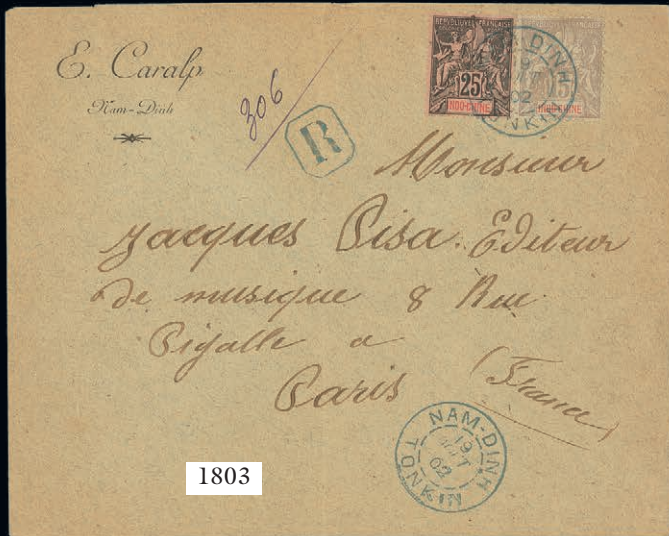 E. Caralp
Nam-Dinh
306
R
REPUBLIQUE FRANÇAISE
25
INDO-CHINE
REPUBLIQUE FRANÇAISE
15
INDO-CHINE
NAM-DINH
19
02
TONKIN
Monsieur
Jacques Pisa. Editeur
de musique 8 Rue
Pigalle a
Paris (France)
NAM-DINH
19
02
TONKIN
1803